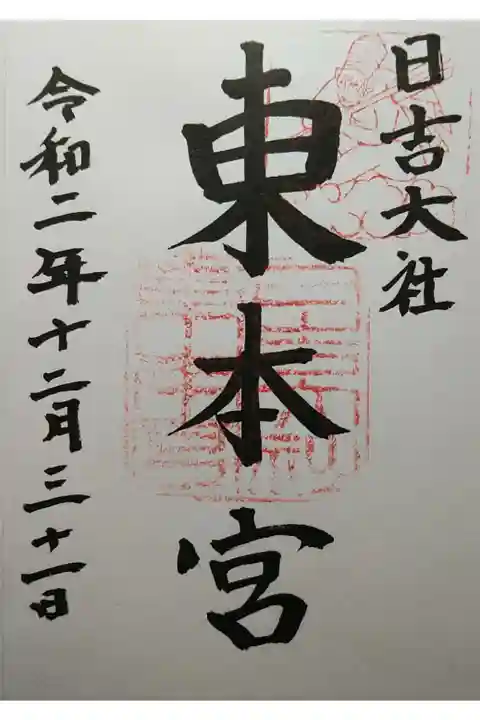 日吉大社
東本宮
令和二年十二月三十一日